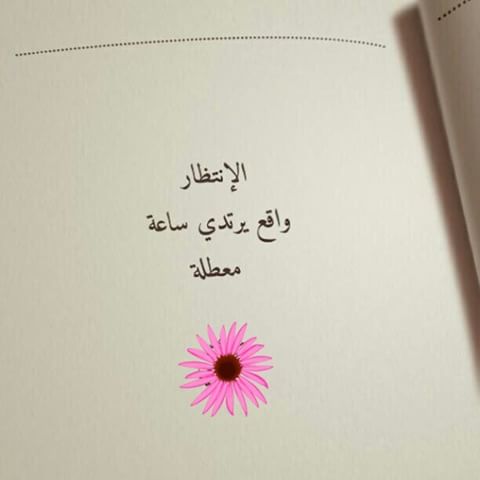 الإنتظار
واقع يرتدي ساعة
معطلة